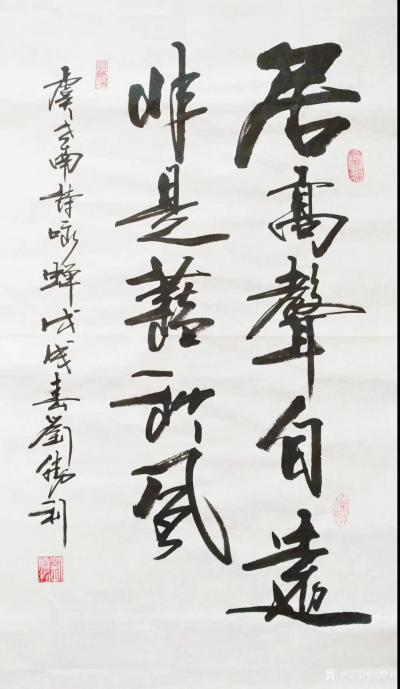 居高聲自遠
非是藉秋風
虞世南詩咏蟬戊戌春劉勝利